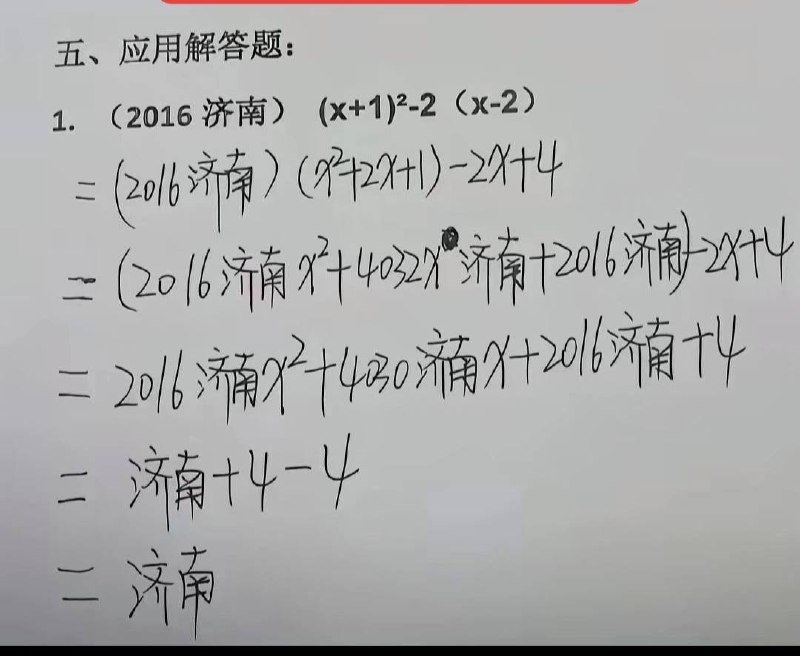 五、应用解答题：
1. （2016 济南） (x+1)²-2（x-2）
= (2016济南) (x²+2x+1) -2x+4
= (2016济南x²+4032x济南+2016济南)-2x+4
= 2016济南x²+4030济南x+2016济南+4
= 济南+4-4
= 济南